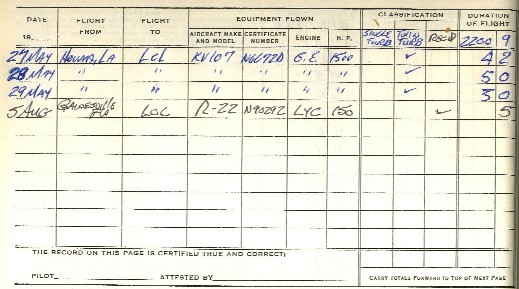 DATE FLIGHT FROM FLIGHT TO EQUIPMENT FLOWN CLASSIFICATION DURATION OF FLIGHT
19 AIRCRAFT MAKE AND MODEL CERTIFICATE NUMBER ENGINE H. P. SINGLE TURB TWIN TURB RECIP 2200 9
27 MAY HOUMA, LA LCL KV107 N6672D G.E. 1500 ✓ 4 2
28 MAY " " " " " " ✓ 5 0
29 MAY " " " " " " ✓ 3 0
5 AUG GAINESVILLE LOC R-22 N9029Z LYC 150 ✓ 5
THE RECORD ON THIS PAGE IS CERTIFIED TRUE AND CORRECT:
PILOT ATTESTED BY CARRY TOTALS FORWARD TO TOP OF NEXT PAGE